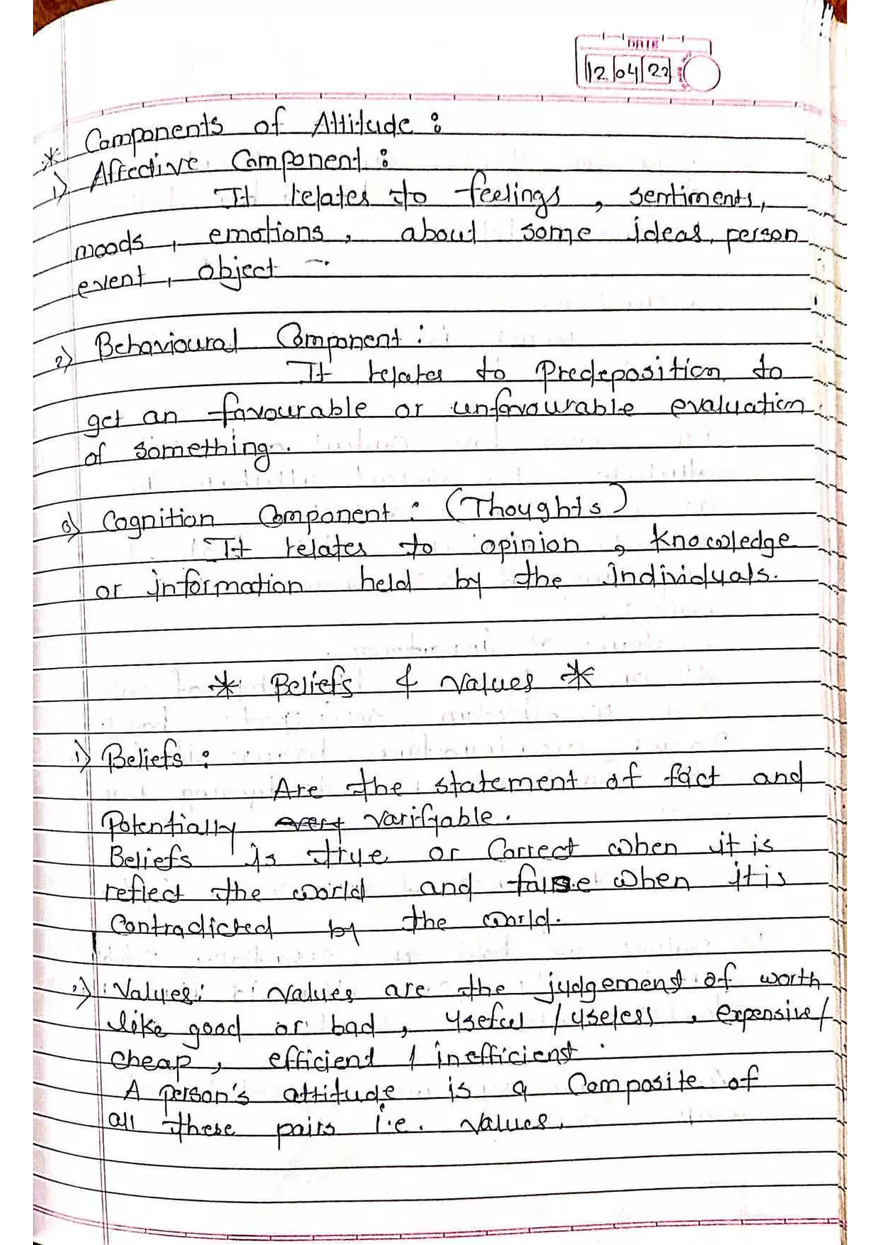 DATE
12 04 23
* Components of Attitude :
1) Affective Component :
It relates to feelings, sentiments,
moods, emotions, about some ideas, person
event, object -
2) Behavioural Component :
It relates to Predeposition to
get an favourable or unfavourable evaluation
of something.
3) Cognition Component : (Thoughts)
It relates to opinion, knowledge
or information held by the individuals.
* Beliefs & Values *
1) Beliefs :
Are the statement of fact and
Potentially every varifiable.
Beliefs is true or Correct when it is
reflect the world and false when it is
Contradicted by the world.
2) Values : Values are the judgement of worth
like good or bad, useful / useless, expensive /
cheap, efficient / inefficient.
A person's attitude is a Composite of
all these pairs i.e. values.